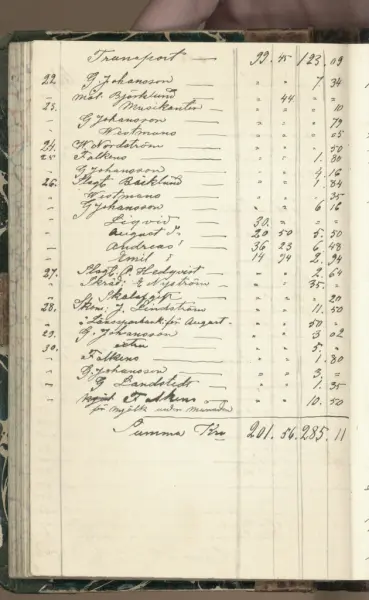 Transport — 99. 45 123. 09
22. G. Johansson — " " 7. 34
" Mål. Björklund — " 44. " "
23. Musikanten — " " " 10
" G Johansson — " " " 79
" Westmans — " " " 05
24. W. Nordström — " " " 50
25. Falkens — " " 1. 80
" G Johansson — " " 4. 16
26. Slagt. Bäcklund — " " 1. 84
" Westmans — " " " 35
" G Johansson — " " 6 16
" Liqvid — 30. " " "
" August — 20 50 5. 50
" Andreas — 36 23 6 48
" Emil — 14 94 2. 94
27. Slagt. P. Hedqvist — " " 2. 64
" Skräd. E Nyström — " " 35. "
" — " " " 20
28. J. Lindström — " " 11. 50
" för August — " " 50 "
29. G. Johansson — " " 3 02
30. — " " 5. "
" Falkens — " " 1. 80
" G. Johansson — " " 3. "
" G Landstedt — " " 1. 35
" Falkens " " 10. 50
för mjölk under månaden
Summa Kr 201. 56. 285. 11